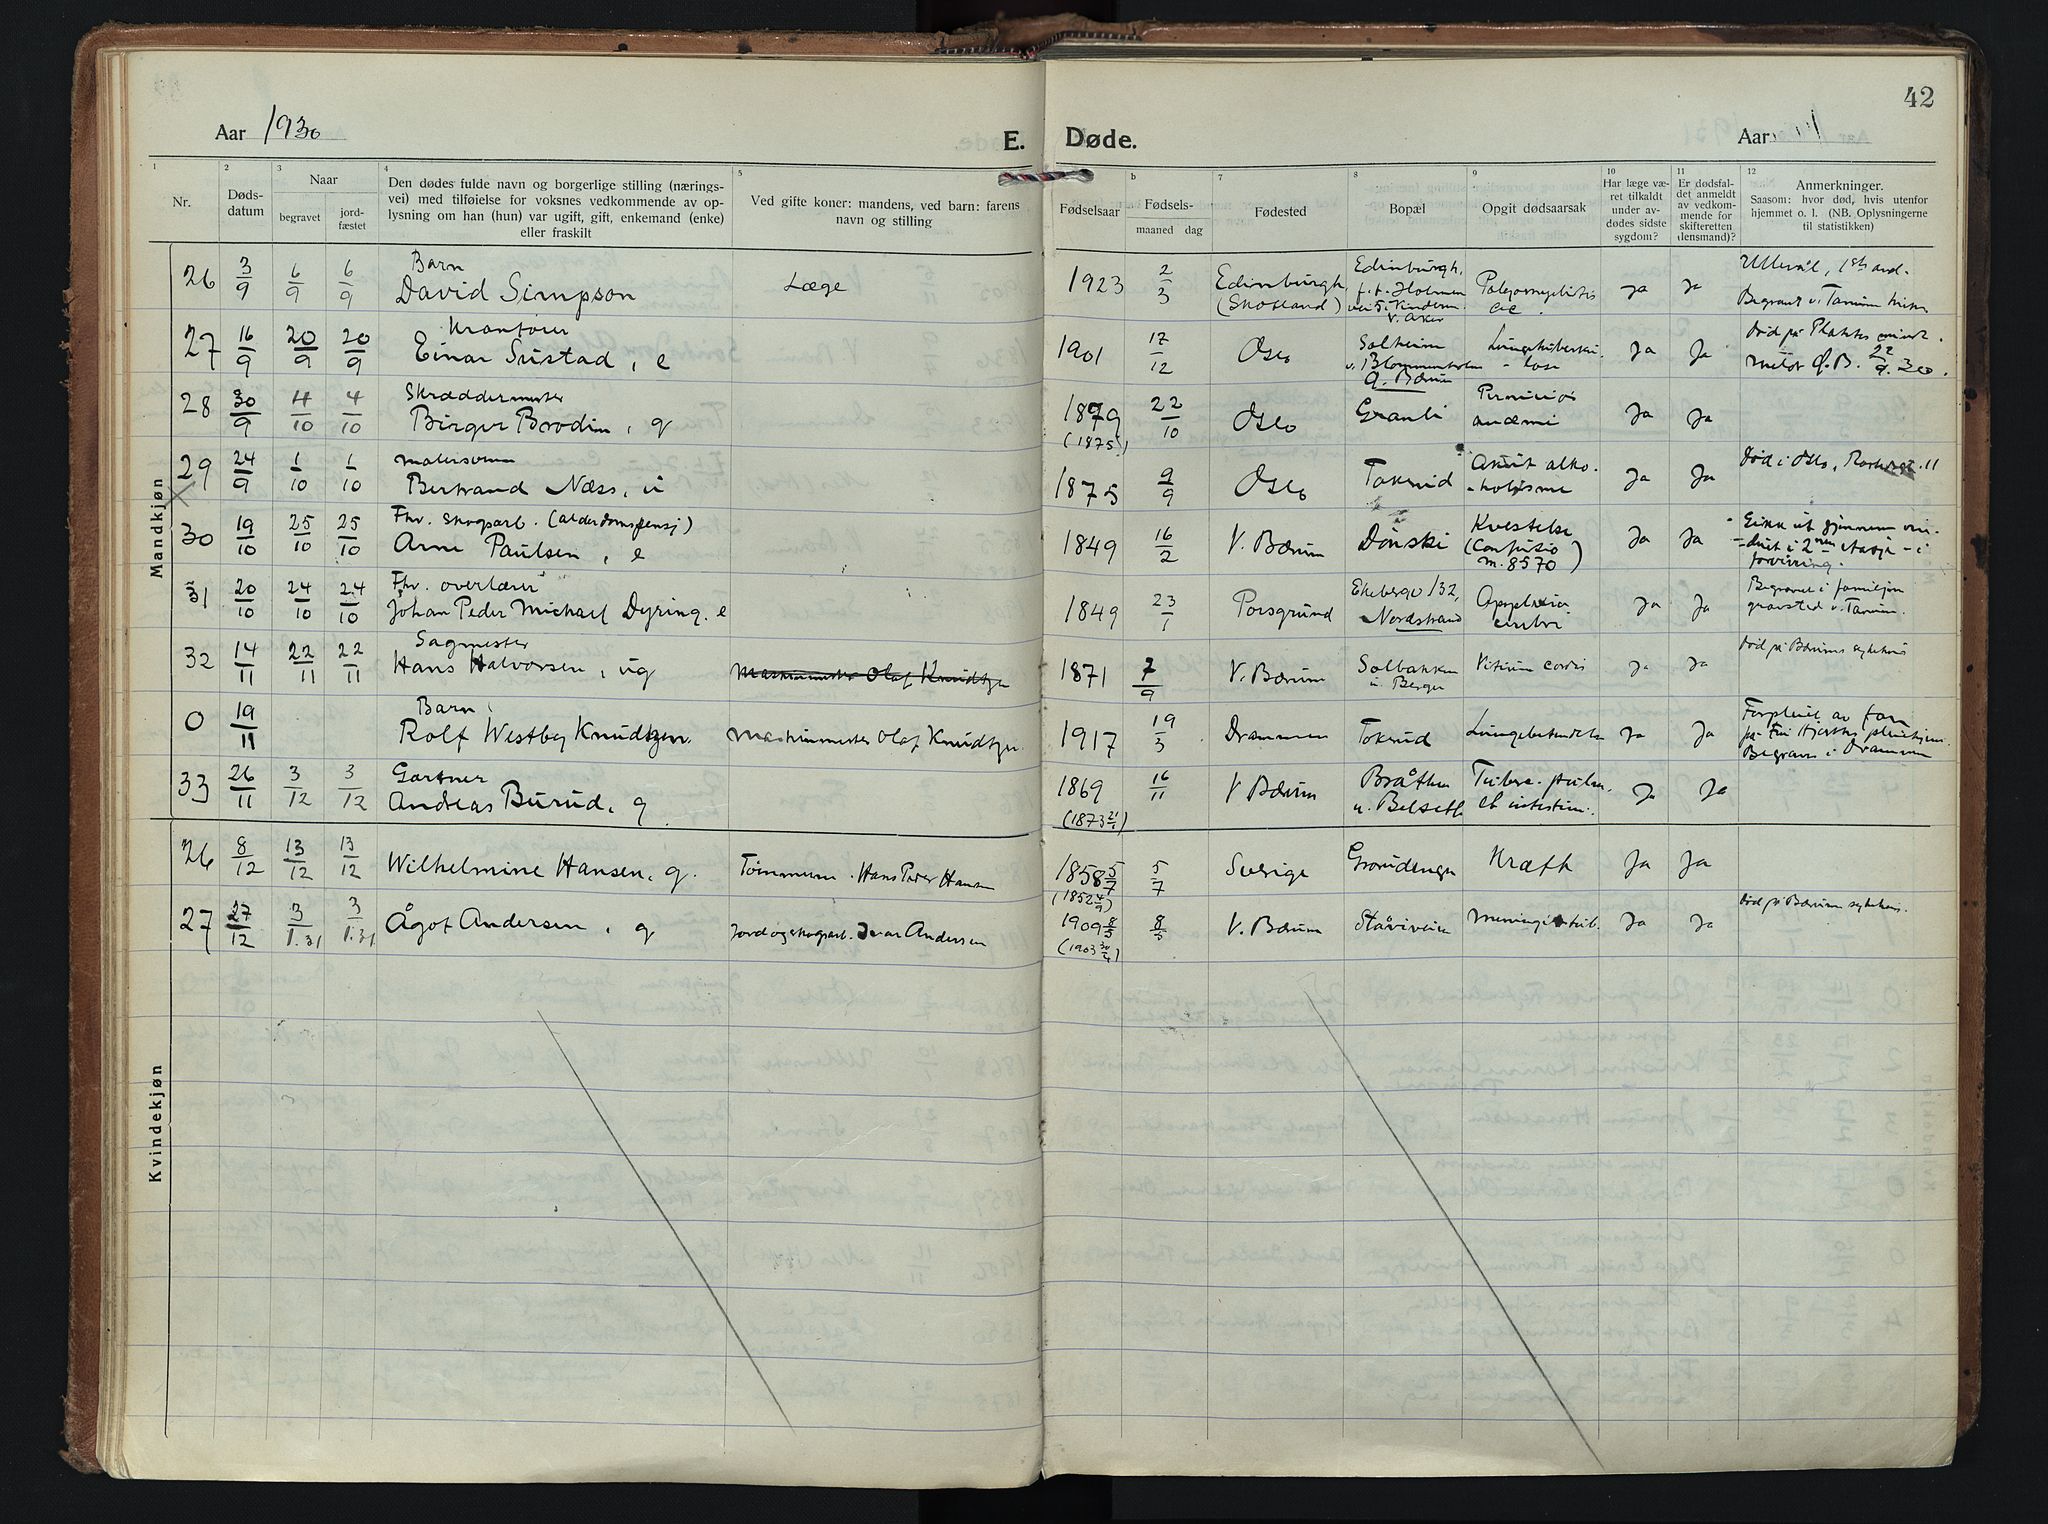 42
Aar 1930
E. Døde.
Aar
1
2
3
4
5
b
7
8
9
10
11
12
Nr.
Døds-
datum
Naar
begravet
jord-
fæstet
Den dødes fulde navn og borgerlige stilling (nærings-
vei) med tilføielse for voksnes vedkommende av op-
lysning om han (hun) var ugift, gift, enkemand (enke)
eller fraskilt
Ved gifte koner: mandens, ved barn: farens
navn og stilling
Fødselsaar
Fødsels-
maaned dag
Fødested
Bopæl
Opgit dødsaarsak
Har læge væ-
ret tilkaldt
under av-
dødes sidste
sygdom?
Er dødsfal-
det anmeldt
av vedkom-
mende for
skifteretten
(lensmand)?
Anmerkninger.
Saasom: hvor død, hvis utenfor
hjemmet o. l. (NB. Oplysningerne
til statistikken)
Mandkjøn
26 3/9 6/9 6/9 Barn
David Simpson Læge 1923 2/3 Edinburgh (Skotland) Edinburgh, Holmen V. Aker Ja Ja Ullevål, Begravt v. Tanum
27 16/9 20/9 20/9
Einar Sustad, e 1901 17/12 Oslo Solheim v. Blommenholm Ø. Bærum Ja Ja Død på 22/9 30.
28 30/9 4/10 4/10 Skræddermester
Birger Brodin, g 1879 (1875) 22/10 Oslo Granli Perniciøs anæmi Ja Ja
29 24/9 1/10 1/10 Malersvenn
Bertrand Næss, u 1875 9/9 Oslo Tokerud Akut alko-holisme Ja Ja Død i Oslo, 11
30 19/10 25/10 25/10 Fhv. skogsarb. (alderdomspensj)
Arne Paulsen, e 1849 16/2 V. Bærum Dønski Kvestelse (Confusio m. 8570) Ja Ja Gikk ut gjennem vin-duet i 2nen etasje i forvirring.
31 20/10 24/10 24/10 Fhv. overlærer
Johan Peder Michael Dyring, e 1849 23/1 Porsgrund Ekebergv 132, Nordstrand Apoplexia cerebri Ja Ja Begravet i familjens gravsted v. Tanum.
32 14/11 22/11 22/11 Sagmester
Hans Halvorsen, ug Maskinmester Olaf Knudtzen 1871 7/9 V. Bærum Solbakken u. Berger Vitium cordis Ja Ja Død på Bærums sykehus
0 19/11 Barn
Rolf Westby Knudtzen. Maskinmester Olaf Knudtzen. 1917 19/3 Drammen Tokerud Lungebetendelse Ja Ja Forpleiet av på Hjorths pleiehjem. Begravet i Drammen
33 26/11 3/12 3/12 Gartner
Andreas Burud, g. 1869 (1873 21/1) 16/11 V Bærum Bråthen u. Belset Tuberc. pulm. et intestin. Ja Ja
Kvindekjøn
26 8/12 13/12 13/12 Wilhelmine Hansen, g. Tømmerm. Hans Peder Hansen 1858 5/7 (1852 4/9) 5/7 Sverige Grorudenga Kræft Ja Ja
27 27/12 3/1.31 3/1.31 Ågot Andersen, g Jord og skogsarb. Ivar Andersen 1909 8/5 (1903 30/4) 8/5 V. Bærum Ståvivein Meningit tub. Ja Ja Død på Bærum sykehus.